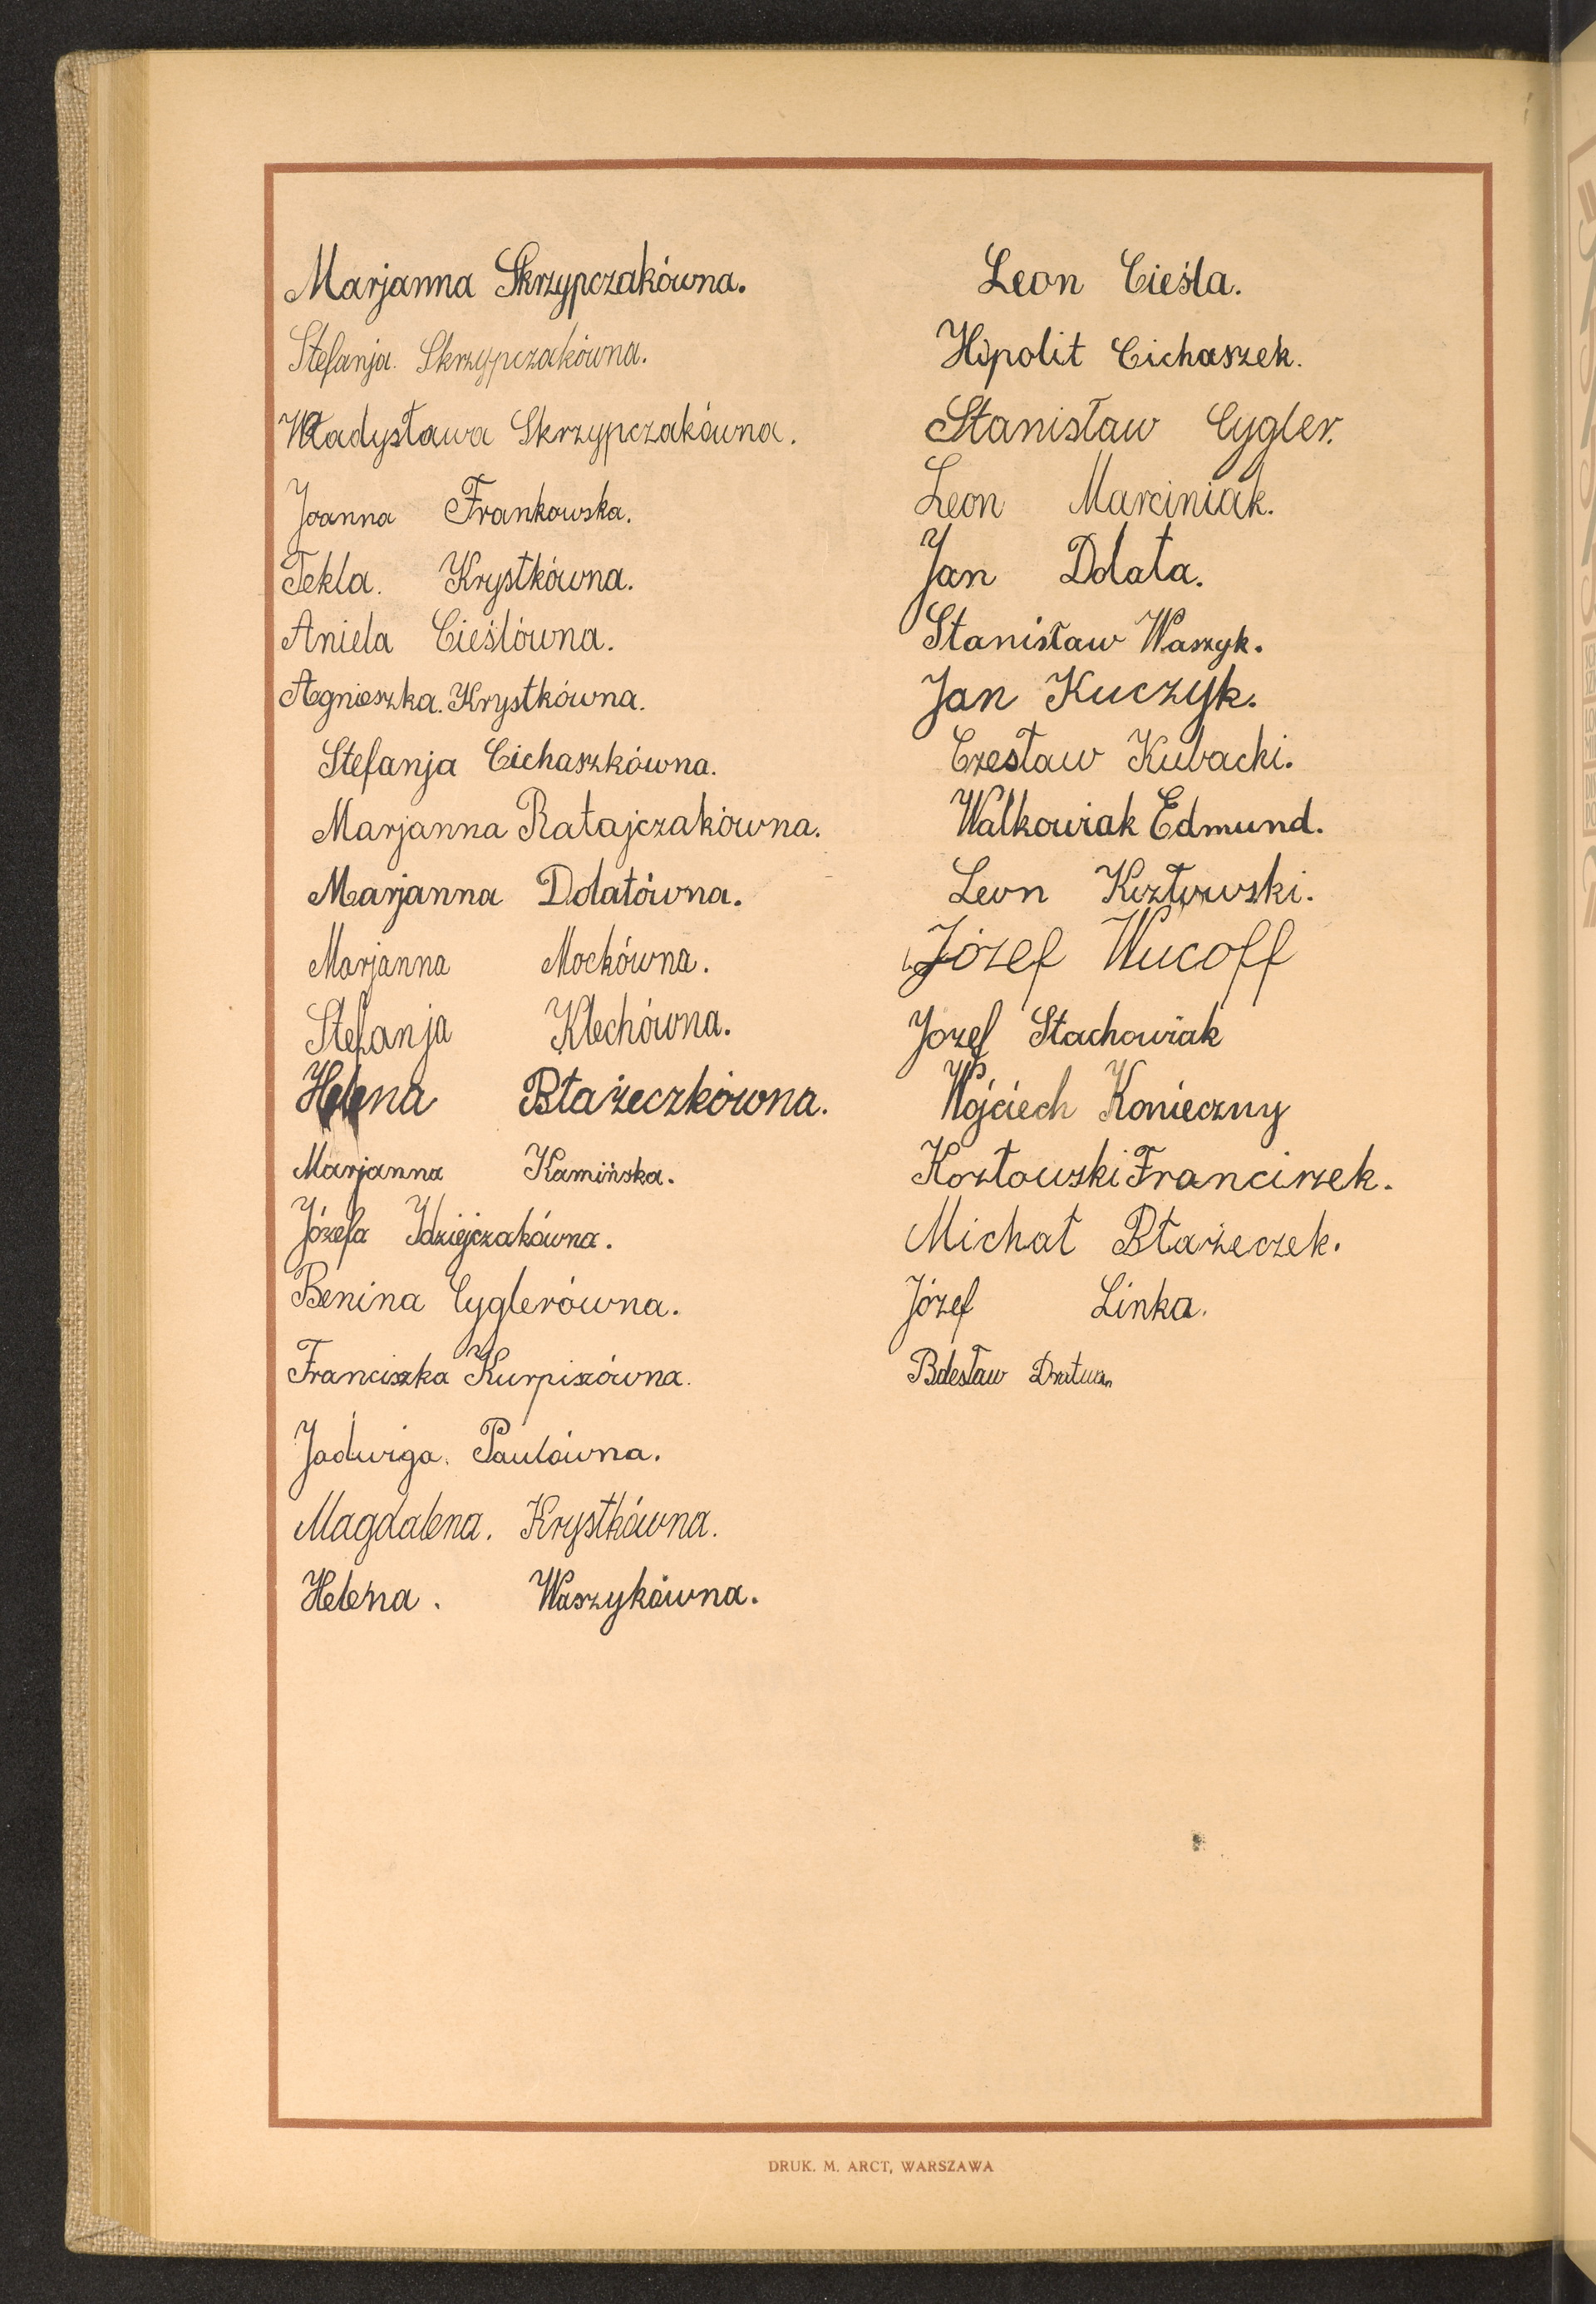 Marjanna Skrzypczakówna.
Stefanja. Skrzypczakówna.
Władysława Skrzypczakówna.
Joanna Frankowska.
Tekla. Krystkówna.
Aniela Cieślówna.
Agnieszka. Krystkówna.
Stefanja Cichaszkówna.
Marjanna Ratajczakówna.
Marjanna Dolatówna.
Marjanna Mockówna.
Stefanja Klechówna.
Helena Błażeczkówna.
Marjanna Kamińska.
Józefa Idziejczakówna.
Benina Cyglerówna.
Franciszka Kurpiszówna.
Jadwiga. Paulówna.
Magdalena. Krystkówna.
Helena. Waszykówna.
Leon Cieśla.
Hipolit Cichaszek.
Stanisław Cygler.
Leon Marciniak.
Jan Dolata.
Stanisław Waszyk.
Jan Kuczyk.
Czesław Kubacki.
Walkowiak Edmund.
Leon Kozłowski.
Józef Wucoff
Jozef Stachowiak
Wojciech Konieczny
Kozłowski Franciszek.
Michał Błażeczek.
Józef Linka.
Bolesław Dratwa
DRUK. M. ARCT, WARSZAWA